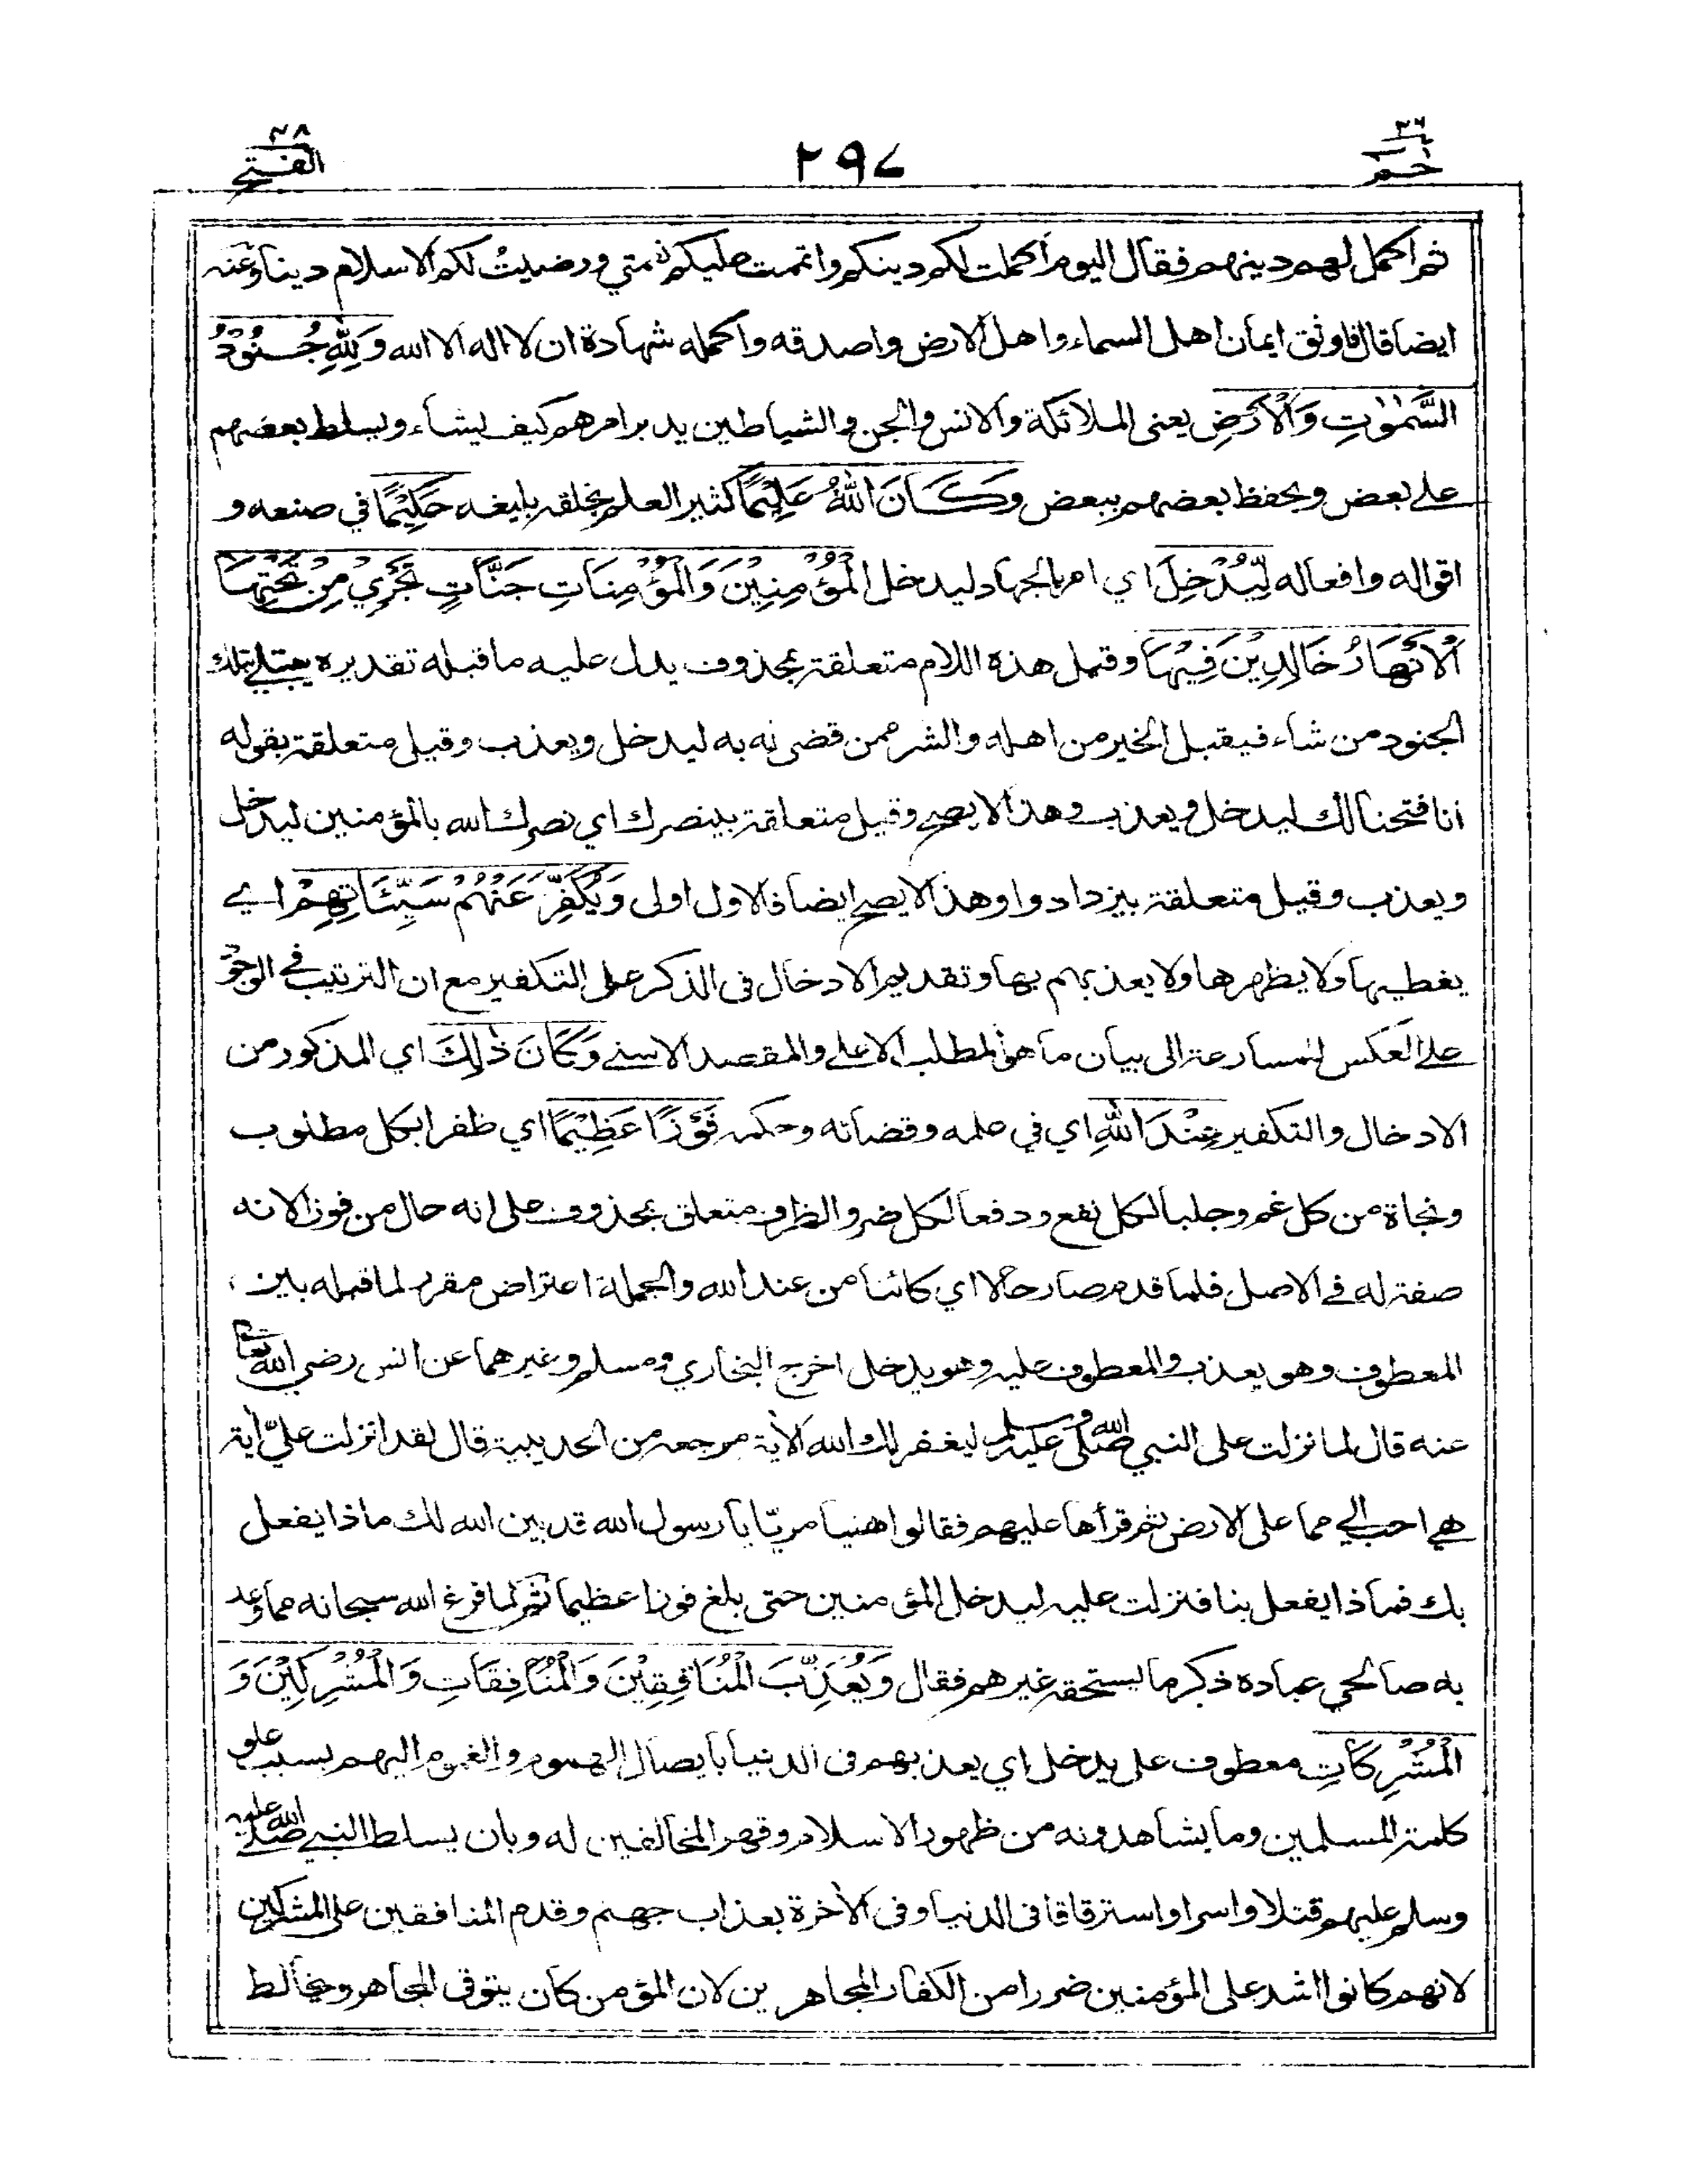 ٢٦
حم
٢٩٧
٤٨
الفتح
ثم اكمل لهم دينهم فقال اليوم اكملت لكم دينكم واتممت عليكم نعمتي ورضيت لكم الاسلام دينا وعنه
ايضا قال فاوثق ايمان اهل السماء واهل الارض واصدقه واكمله شهادة ان لا اله الا الله وَلِلّٰهِ جُنُوْدُ
السَّمٰوٰتِ وَالْأَرْضِ يعنى الملائكة والانس والجن والشياطين يدبر امرهم كيف يشاء ويسلط بعضهم
على بعض ويحفظ بعضهم ببعض وَكَانَ اللهُ عَلِيْمًا كثير العلم بخلقه بليغه حَكِيْمًا في صنعه و
اقواله وافعاله لِّيُدْخِلَ اي امر بالجهاد ليدخل الْمُؤْمِنِيْنَ وَالْمُؤْمِنَاتِ جَنَّاتٍ تَجْرِيْ مِنْ تَحْتِهَا
الْأَنْهَارُ خَالِدِيْنَ فِيْهَا وقيل هذه اللام متعلقة بمحذوف يدل عليه ما قبله تقديره يبتلي بتلك
الجنود من شاء فيقبل الخير من اهله والشر ممن قضى له به ليدخل ويعذب وقيل متعلقة بقوله
انا فتحنا لك ليدخل ويعذب وهذا لا يصح وقيل متعلقة بينصرك اي نصرك الله بالمؤمنين ليدخل
ويعذب وقيل متعلقة بيزدادوا وهذا لا يصح ايضا فالاول اولى وَيُكَفِّرَ عَنْهُمْ سَيِّئَاتِهِمْ اي
يغطيها ولا يظهرها ولا يعذبهم بها وتقديم الادخال فى الذكر على التكفير مع ان الترتيب في الوجود
على العكس للمسارعة الى بيان ما هو المطلب الاعلى والمقصد الاسنى وَكَانَ ذٰلِكَ اي المذكور من
الادخال والتكفير عِنْدَ اللهِ اي في علمه وقضائه وحكمه فَوْزًا عَظِيْمًا اي ظفرا بكل مطلوب
ونجاة من كل غم وجلبا لكل نفع ودفعا لكل ضر والظرف متعلق بمحذوف على انه حال من فوزا لانه
صفة له في الاصل فلما قدم صار حالا اي كائنا من عند الله والجملة اعتراض مقرر لما قبله بين
المعطوف وهو يعذب والمعطوف عليه وهو يدخل اخرج البخاري ومسلم وغيرهما عن انس رضي الله تعالى
عنه قال لما نزلت على النبي صلى الله عليه وسلم ليغفر لك الله الآية مرجعه من الحديبية قال لقد انزلت عليّ آية
هي احب الي مما على الارض ثم قرأها عليهم فقالوا هنيا مريّا يا رسول الله قد بين الله لك ماذا يفعل
بك فماذا يفعل بنا فنزلت عليه ليدخل المؤمنين حتى بلغ فوزا عظيما ثم لما فرغ الله سبحانه مما وعد
به صالحي عباده ذكر ما يستحقه غيرهم فقال وَيُعَذِّبَ الْمُنَافِقِيْنَ وَالْمُنَافِقَاتِ وَالْمُشْرِكِيْنَ وَ
الْمُشْرِكَاتِ معطوف على يدخل اي يعذبهم فى الدنيا بايصال الهموم والغموم اليهم بسبب علو
كلمة المسلمين وما يشاهدونه من ظهور الاسلام وقهر المخالفين له وبان يسلط النبي صلى الله عليه
وسلم عليهم قتلا واسرا واسترقاقا فى الدنيا وفى الأخرة بعذاب جهنم وقدم المنافقين على المشركين
لانهم كانوا اشد على المؤمنين ضررا من الكفار المجاهرين لان المؤمن كان يتوقى المجاهر ويخالط